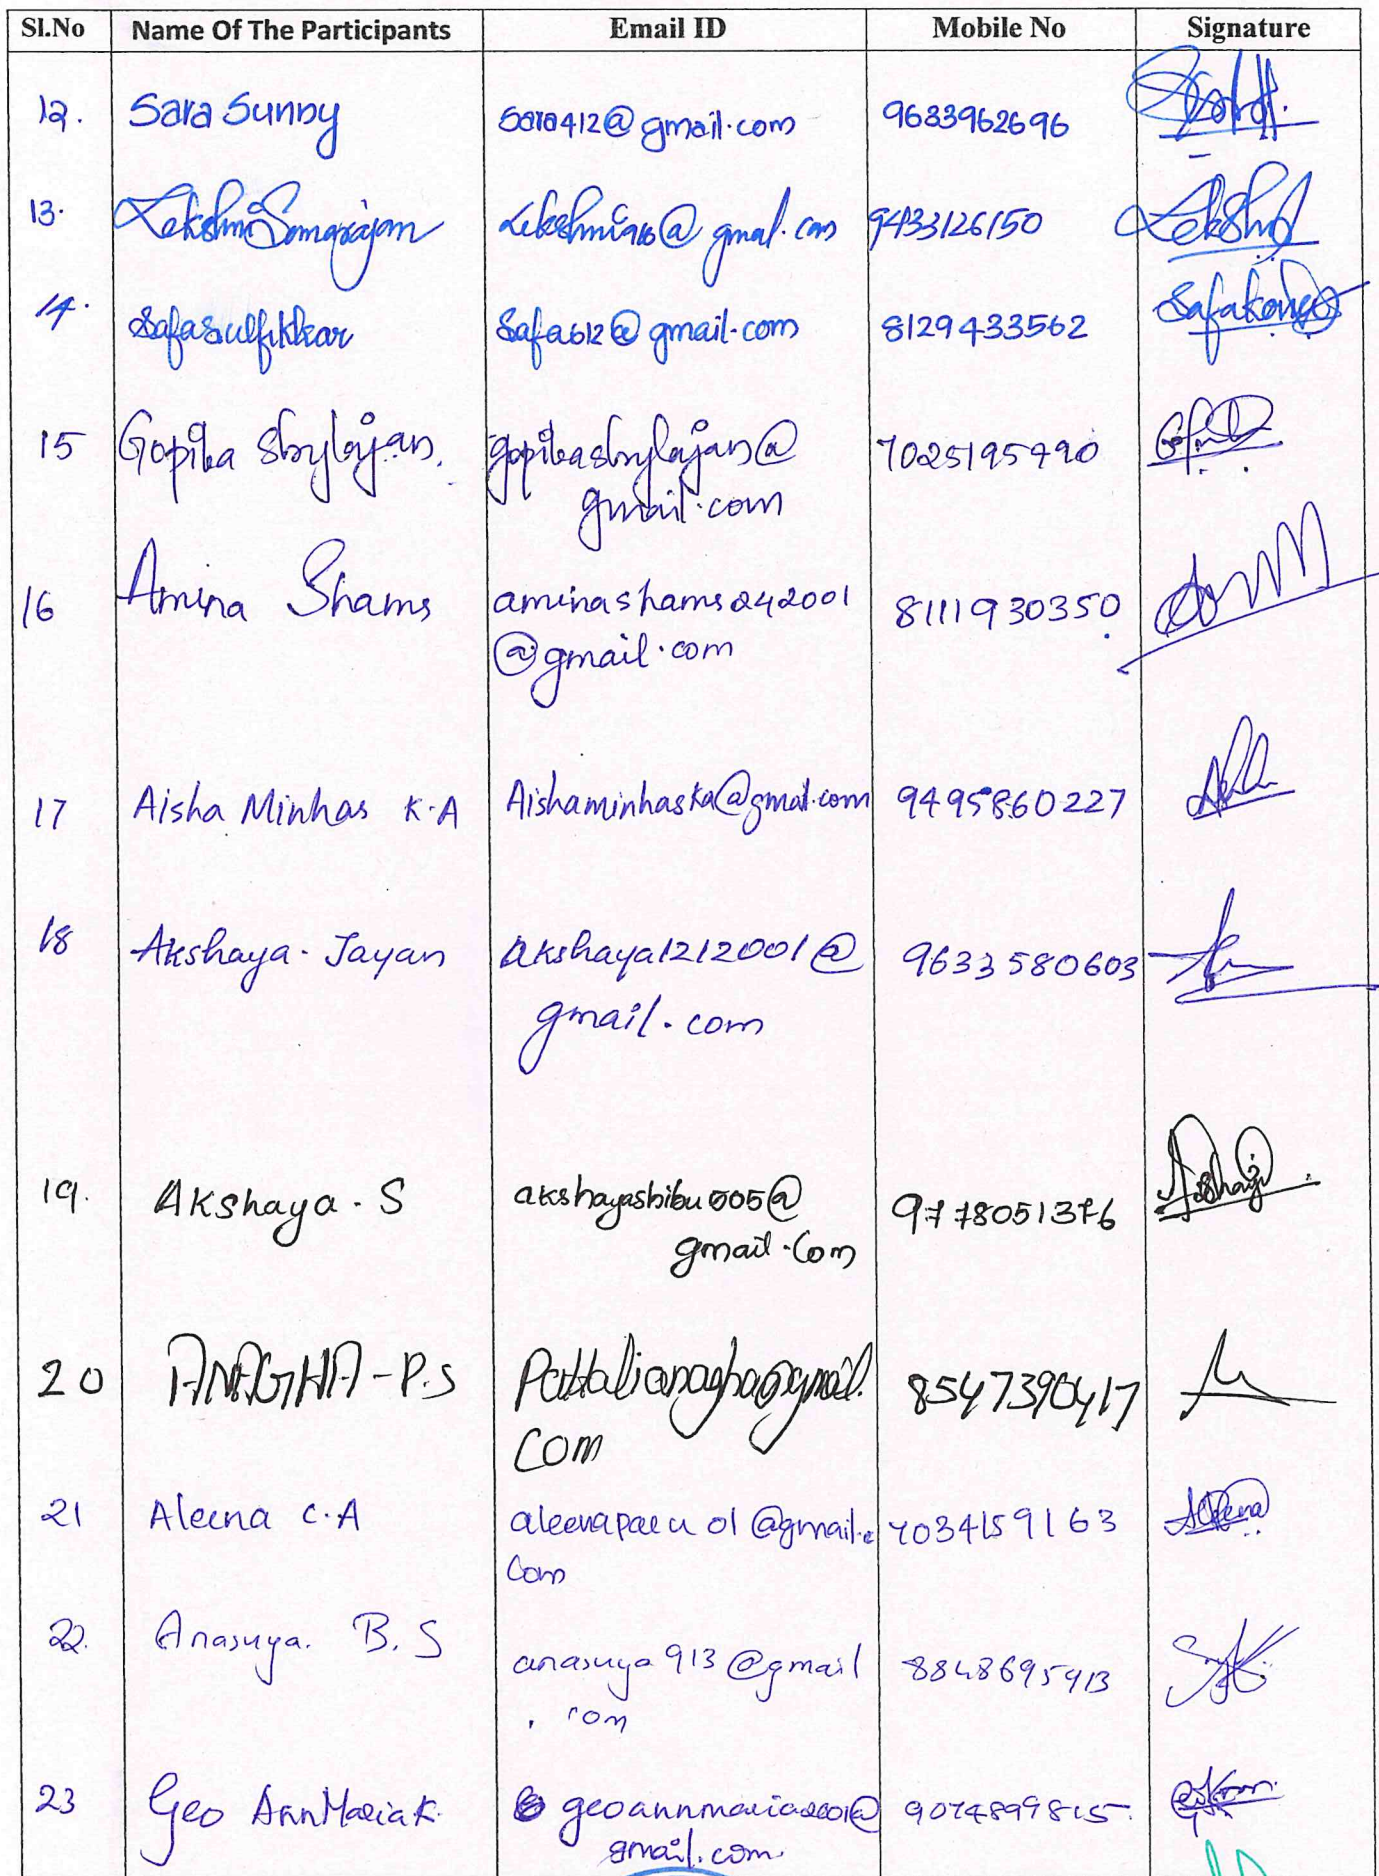 Sl.No Name Of The Participants Email ID Mobile No Signature
12. Sara Sunny sara412@gmail.com 9633962696
13. Lekshmi Somarajan Lekshmi916@gmail.com 9433126150 Lekshmi
14. Safa Sulfikkar Safa612@gmail.com 8129433562
15 Gopika Shylajan. gopikashylajan@
gmail.com 7025195790
16 Amina Shams aminashams242001
@gmail.com 8111930350
17 Aisha Minhas K.A Aishaminhaska@gmail.com 9495860227
18 Akshaya. Jayan akshaya1212001@
gmail.com 9633580603
19. Akshaya. S akshayashibu005@
gmail.com 9778051376
20 ANAGHA-P.S Pattalianagha@gmail.
com 8547390417
21 Aleena C.A 7034159163 Aleena
com
22. Anasuya. B.S anasuya913@gmail
.com 8848695913
23 Geo AnnMaria K. geoannmaria2001@
gmail.com. 9074899815.